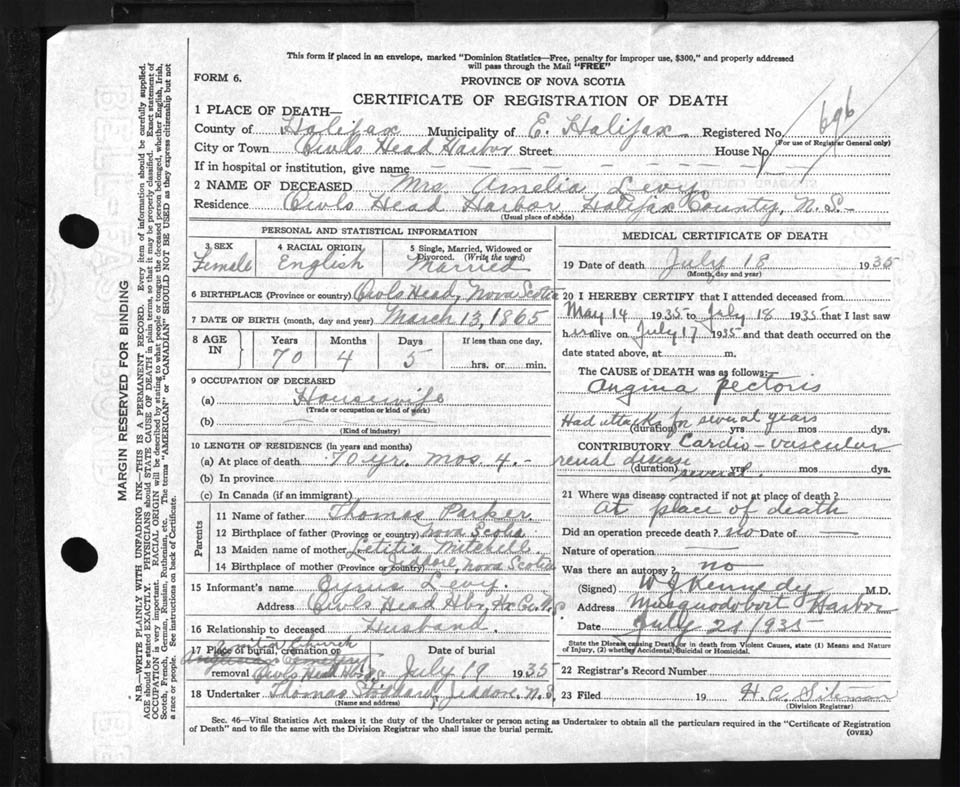 This form if placed in an envelope, marked "Dominion Statistics—Free, penalty for improper use, $300," and properly addressed
will pass through the Mail "FREE"
FORM 6.
PROVINCE OF NOVA SCOTIA
CERTIFICATE OF REGISTRATION OF DEATH
1 PLACE OF DEATH—
County of Halifax Municipality of E. Halifax Registered No. 696
(For use of Registrar General only)
City or Town Owls Head Harbor Street House No.
If in hospital or institution, give name
2 NAME OF DECEASED Mrs Amelia Levy
Residence Owls Head Harbor Halifax County, N.S.
(Usual place of abode)
PERSONAL AND STATISTICAL INFORMATION
3 SEX Female
4 RACIAL ORIGIN English
5 Single, Married, Widowed or
Divorced. (Write the word)
Married
6 BIRTHPLACE (Province or country) Owls Head, Nova Scotia
7 DATE OF BIRTH (month, day and year) March 13, 1865
8 AGE IN
Years Months Days If less than one day,
70 4 5 hrs. or min.
9 OCCUPATION OF DECEASED
(a) Housewife
(Trade or occupation or kind of work)
(b)
(Kind of industry)
10 LENGTH OF RESIDENCE (in years and months)
(a) At place of death 70 yr. mos 4.
(b) In province
(c) In Canada (if an immigrant)
Parents
11 Name of father Thomas Parker
12 Birthplace of father (Province or country) Nova Scotia
13 Maiden name of mother Letitia Mitchell
14 Birthplace of mother (Province or country) Jeddore, Nova Scotia
15 Informant's name Cyrus Levy
Address Owls Head Hbr, Hx Co. N.S
16 Relationship to deceased Husband
17 Place of burial, cremation or
removal Owls Head Hbr
Date of burial
July 19 1935
18 Undertaker Thomas Stoddard, Jeddore, N.S.
(Name and address)
MEDICAL CERTIFICATE OF DEATH
19 Date of death July 18 1935
(Month, day and year)
20 I HEREBY CERTIFY that I attended deceased from
May 14 1935 to July 18 1935 that I last saw
her alive on July 17 1935 and that death occurred on the
date stated above, at m.
The CAUSE OF DEATH was as follows:—
Angina Pectoris
Had attacks for several years
(duration) yrs mos dys.
CONTRIBUTORY Cardio-vascular
renal disease
(duration) several yrs. mos dys.
21 Where was disease contracted if not at place of death?
At place of death
Did an operation precede death? no Date of
Nature of operation
Was there an autopsy? no
(Signed) W J Kennedy M.D.
Address Musquodoboit Harbor
Date July 21 1935
State the Disease causing Death, or in death from Violent Causes, state (1) Means and Nature
of Injury, (2) whether Accidental, Suicidal or Homicidal.
22 Registrar's Record Number
23 Filed 19 H. C.
(Division Registrar)
Sec. 46—Vital Statistics Act makes it the duty of the Undertaker or person acting as Undertaker to obtain all the particulars required in the "Certificate of Registration
of Death" and to file the same with the Division Registrar who shall issue the burial permit.
(OVER)
MARGIN RESERVED FOR BINDING
N.B.—WRITE PLAINLY WITH UNFADING INK—THIS IS A PERMANENT RECORD. Every item of information should be carefully supplied.
AGE should be stated EXACTLY. PHYSICIANS should STATE CAUSE OF DEATH in plain terms, so that it may be properly classified. Exact statement of
OCCUPATION is very important. RACIAL ORIGIN will be described by stating to what people or tongue the deceased person belonged, whether English, Irish,
Scotch, French, German, Russian, Ruthenian, etc. The terms "AMERICAN" or "CANADIAN" SHOULD NOT BE USED as they express citizenship but not
a race or people. See instructions on back of Certificate.